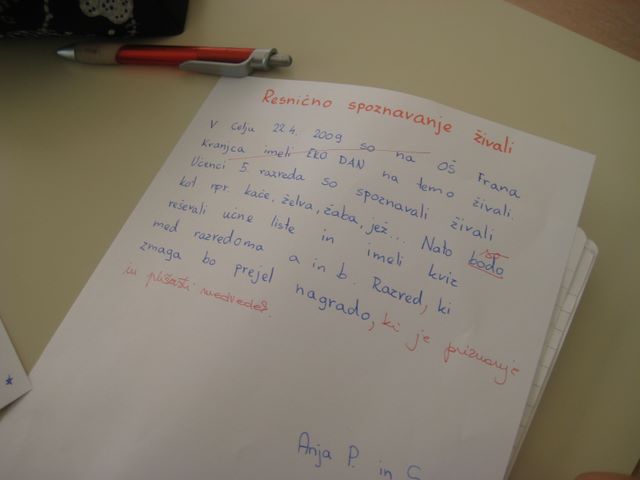 Resnično spoznavanje živali
V Celju 22.4. 2009 so na OŠ Frana
Kranjca imeli EKO DAN na temo živali.
Učenci 5. razreda so spoznavali živali
kot npr. kače, želva, žaba, jež... Nato bodo
so
reševali učne liste in imeli kviz
med razredoma a in b. Razred, ki
zmaga bo prejel nagrado, ki je priznanje
in plišasti medvedek.
Anja P. in